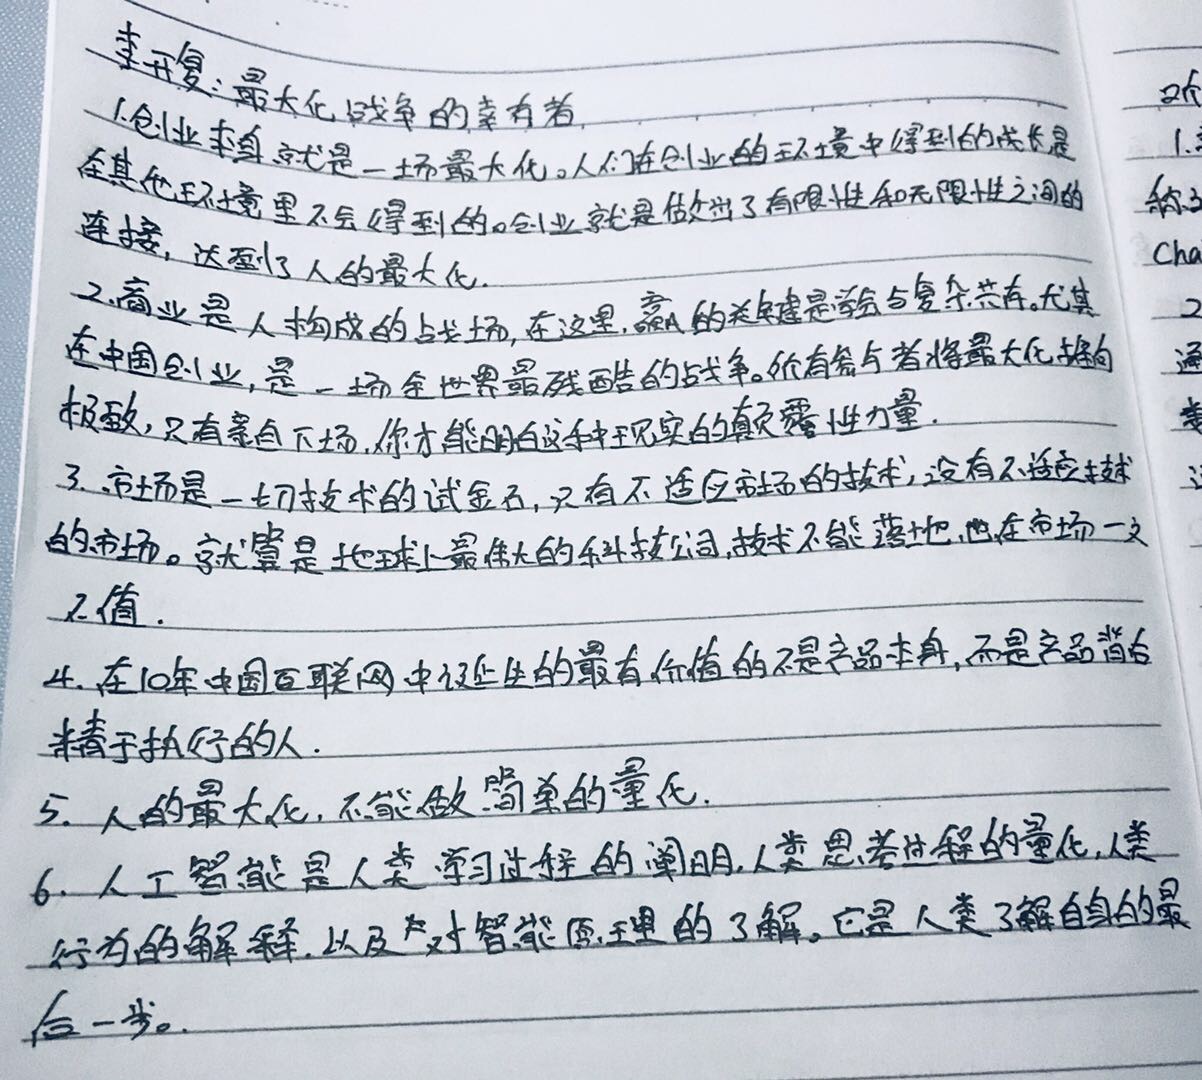 李开复：最大化战争的幸有者
1.创业本身就是一场最大化。人们在创业的环境中得到的成长是
在其他环境里不会得到的。创业就是做出了有限性和无限性之间的
连接，达到了人的最大化.
2.商业是人构成的战场,在这里,赢的关键是学会与复杂共存。尤其
在中国创业,是一场全世界最残酷的战争。所有参与者将最大化推向
极致,只有亲自下场,你才能明白这种现实的颠覆性力量.
3.市场是一切技术的试金石,只有不适应市场的技术,没有不适应技术
的市场。就算是地球上最伟大的科技公司,技术不能落地,也在市场一文
不值.
4.在10年中国互联网中诞生的最有价值的不是产品本身,而是产品背后
精于执行的人.
5.人的最大化,不能做简单的量化.
6.人工智能是人类学习过程的阐明,人类思考过程的量化,人类
行为的解释.以及对智能原理的了解。它是人类了解自身的最
后一步。
2个
1.
纳.3
Cha
2
通